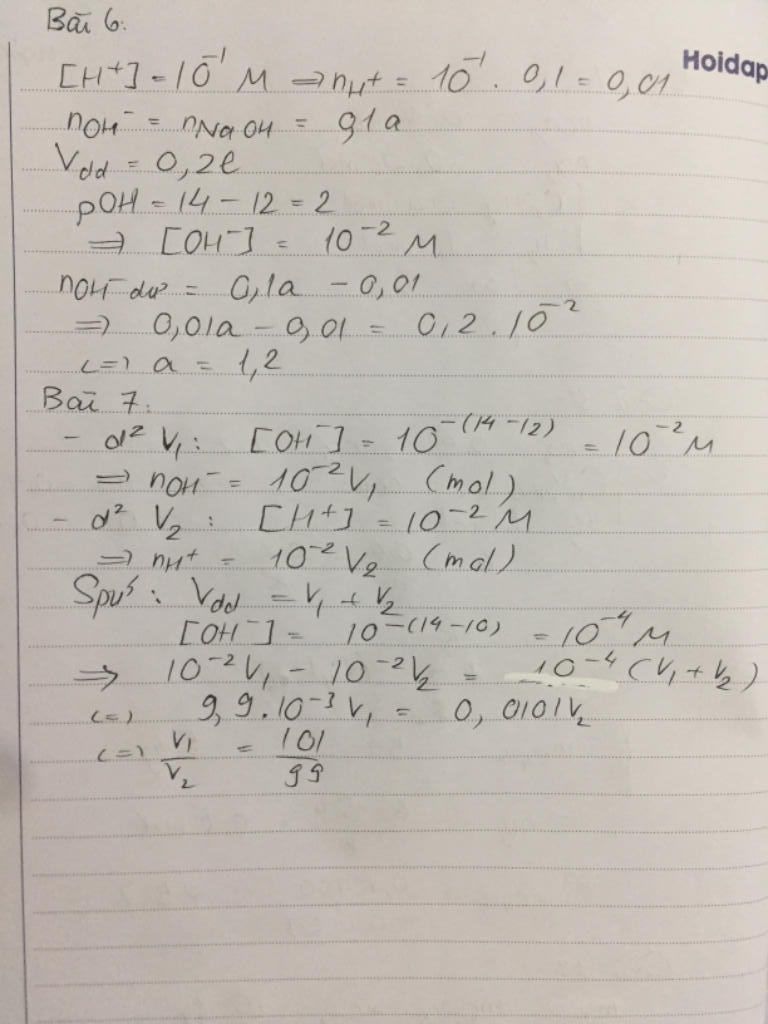 Bài 6:
Hoidap
[H⁺] = 10⁻¹ M ⇒ nH⁺ = 10⁻¹ . 0,1 = 0,01
nOH⁻ = nNaOH = 0,1a
Vdd = 0,2l
pOH = 14 - 12 = 2
⇒ [OH⁻] = 10⁻² M
nOH⁻ dư = 0,1a - 0,01
⇒ 0,01a - 0,01 = 0,2 . 10⁻²
<=> a = 1,2
Bài 7:
- d² V₁ : [OH⁻] = 10⁻⁽¹⁴ ⁻¹²⁾ = 10⁻² M
⇒ nOH⁻ = 10⁻² V₁ (mol)
- d² V₂ : [H⁺] = 10⁻² M
⇒ nH⁺ = 10⁻² V₂ (mol)
Spứ : Vdd = V₁ + V₂
[OH⁻] = 10⁻⁽¹⁴⁻¹⁰⁾ = 10⁻⁴ M
⇒ 10⁻² V₁ - 10⁻² V₂ = 10⁻⁴ (V₁ + V₂)
<=> 9,9.10⁻³ V₁ = 0,0101V₂
<=> V₁/V₂ = 101/99